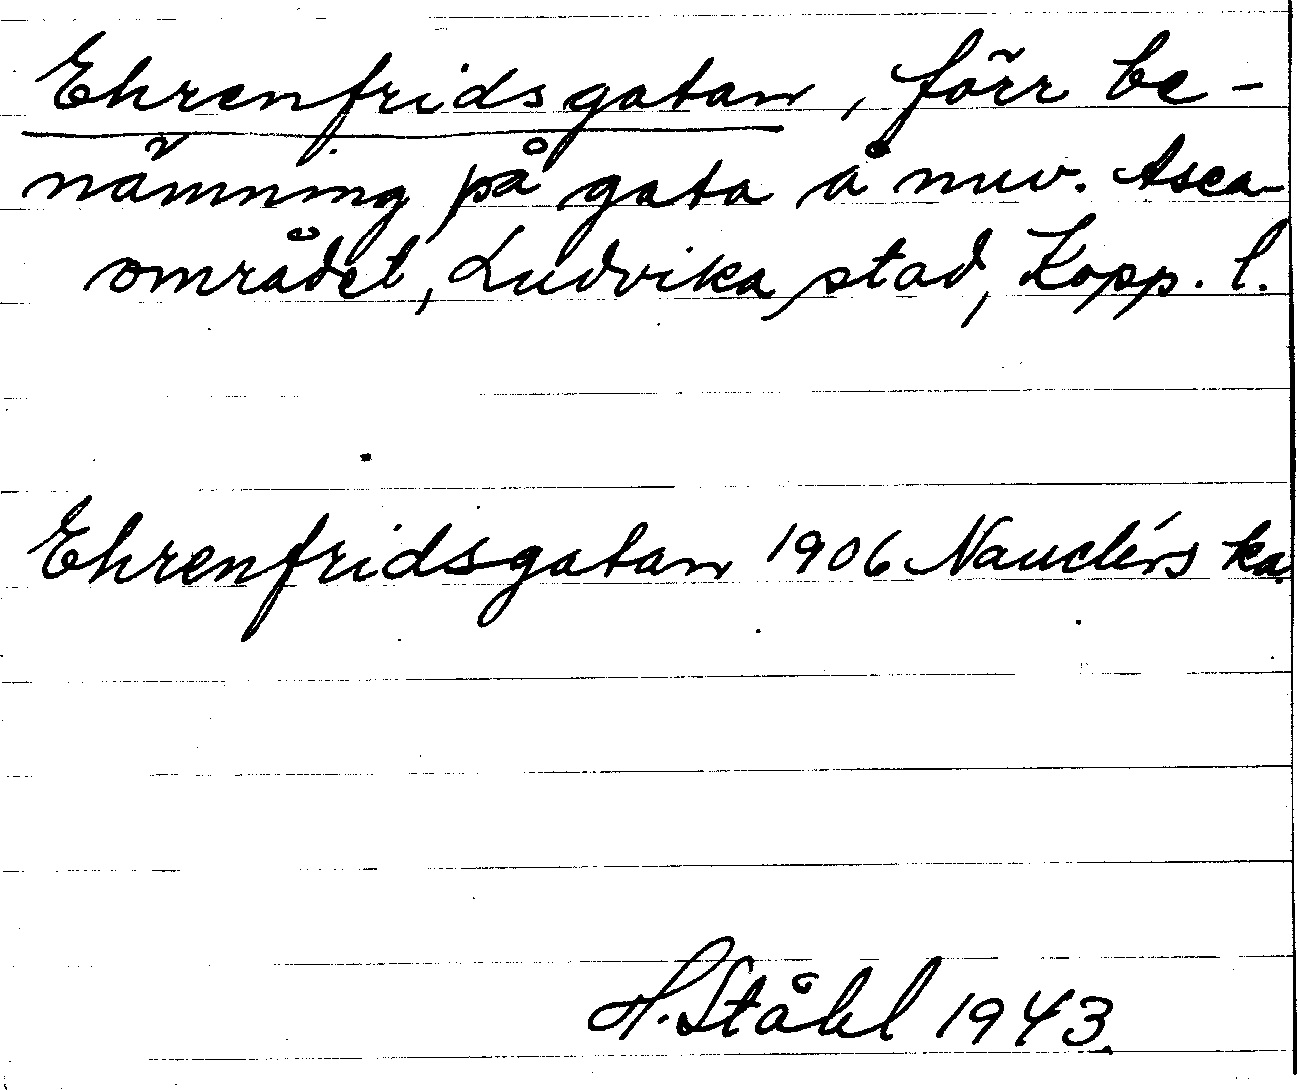 Ehrenfridsgatan, förr be-
nämning på gata å nuv. Asea-
området, Ludvika stad, Kopp. l.
Ehrenfridsgatan 1906 Nauclérs ka.
H. Ståhl 1943.